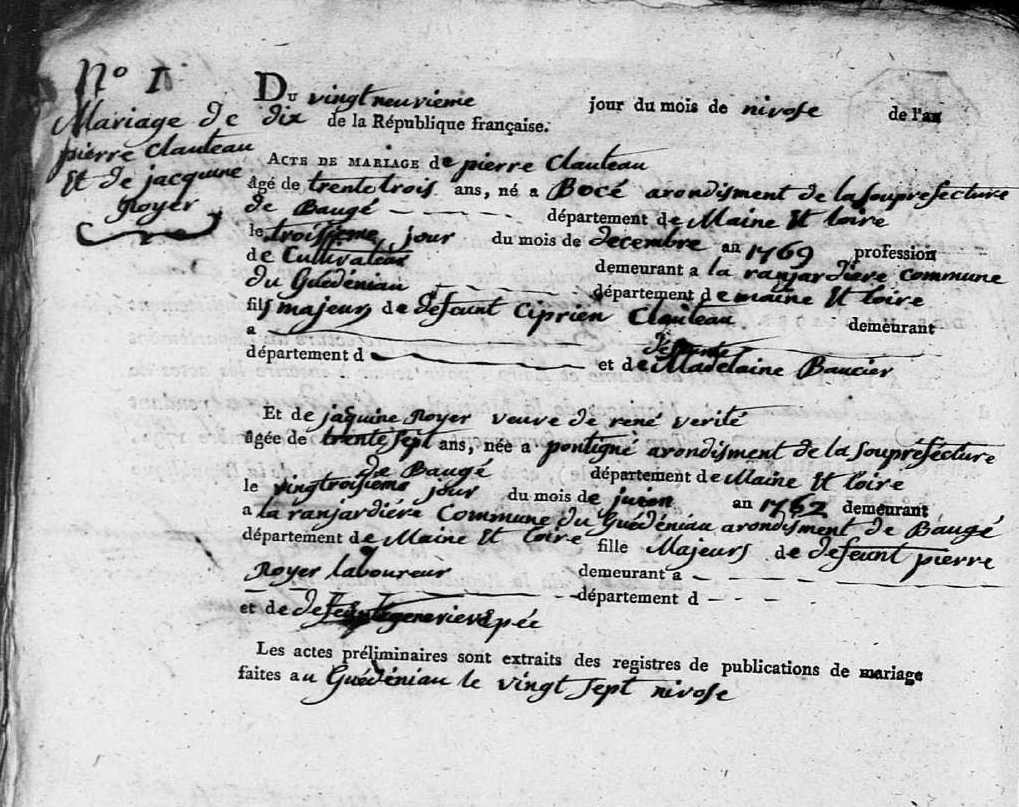 N° 1
Mariage de
pierre Clauteau
Et de jacquine
Royer
Du vingt neuvieme jour du mois de nivose de l'an
dix de la République française.
ACTE DE MARIAGE de pierre Clauteau
âgé de trente trois ans, né a Bocé arondisment de la souprefecture
de Baugé département de Maine Et loire
le troisieme jour du mois de decembre an 1769 profession
de Cultivateur demeurant a la ranjardiere commune
du Guédéniau département de maine Et loire
fils majeurs de defeunt Ciprien Clauteau demeurant
a
département d et de defeunte Madelaine Baucier
Et de jaquine Royer veuve de rené verité
âgée de trente sept ans, née a pontigné arondisment de la soupréfécture
de Baugé département de Maine Et loire
le vingtroisieme jour du mois de an 1762 demeurant
a la ranjardiére Commune du Guédéniau arondisment de Baugé
département de Maine Et loire fille Majeurs de defeunt pierre
Royer laboureur demeurant a
département d
et de genevieve pée
Les actes préliminaires sont extraits des registres de publications de mariage
faites au Guédéniau le vingt sept nivose